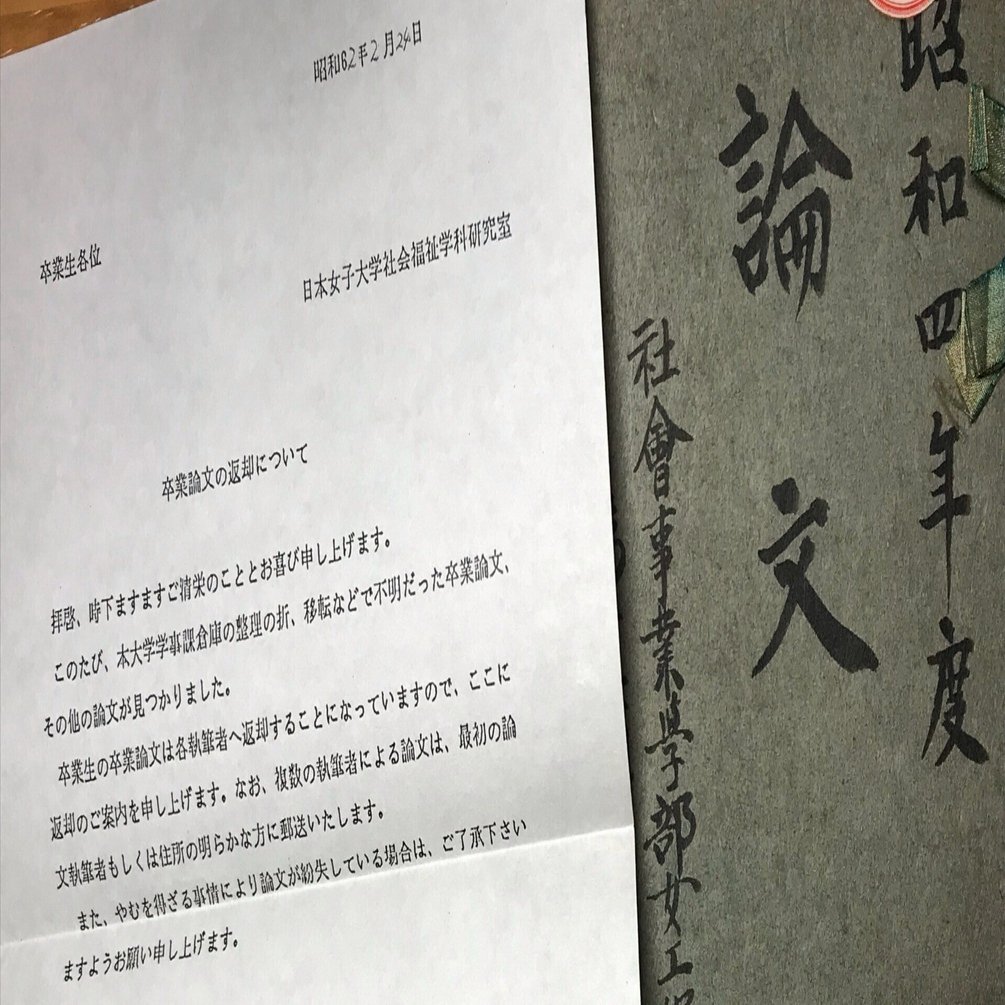 昭和62年2月24日
卒業生各位
日本女子大学社会福祉学科研究室
卒業論文の返却について
拝啓、時下ますますご清栄のこととお喜び申し上げます。
このたび、本大学学事課倉庫の整理の折、移転などで不明だった卒業論文、
その他の論文が見つかりました。
卒業生の卒業論文は各執筆者へ返却することになっていますので、ここに
返却のご案内を申し上げます。なお、複数の執筆者による論文は、最初の論
文執筆者もしくは住所の明らかな方に郵送いたします。
また、やむを得ざる事情により論文が紛失している場合は、ご了承下さい
ますようお願い申し上げます。
昭和四年度
論文
社會事業学部女工